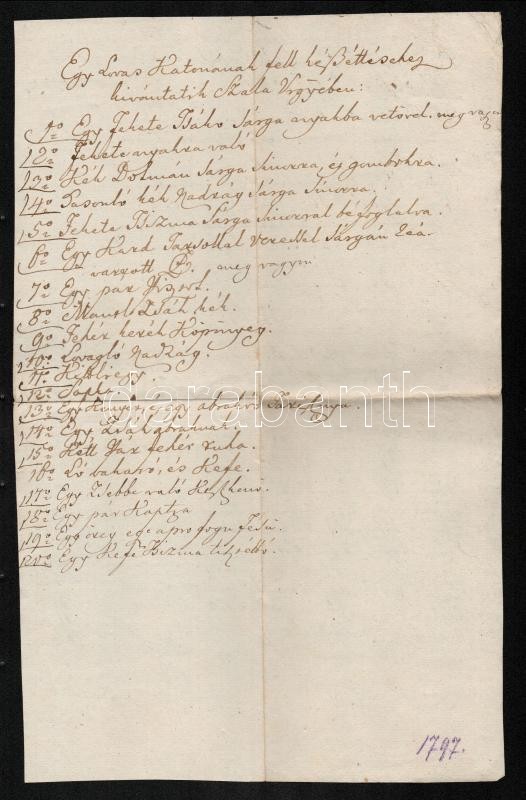 Egy Lovas Katonának fell késséttéséhez
kivántatik Szala Vrgyében:
1o Egy Fekete Tsáko Sárga anyakba vetövel. meg vagyon
2o Fekete nyakra való
3o Kék Dolmán Sárga Sinorra, és gombokra.
4o Hasonló kék Nadrág Sárga Sinorra.
5o Fekete Tsizma Sárga Sinorral béfoglalva.
6o Egy Kard Taxsollal veressel Sárgán
varrott meg vagyon
7o Egy par
8o kék.
9o Fehér kerék Köpinyeg.
10o Lovagló Nadrág.
11o
12o Sapka
13o Egy Kenyér, s egy abrakos Tarisznya.
14o Egy Zsák abraknak.
15o Kétt Pár fehér ruha.
16o Ló vakaró, és Kefe.
17o Egy Zsebbe való Keszkenö.
18o Egy par Kaptza
19o Egy öreg egy apro fogu Fésü.
20o Egy Kefe Tsizma tisztitó.
darabanth
1797.